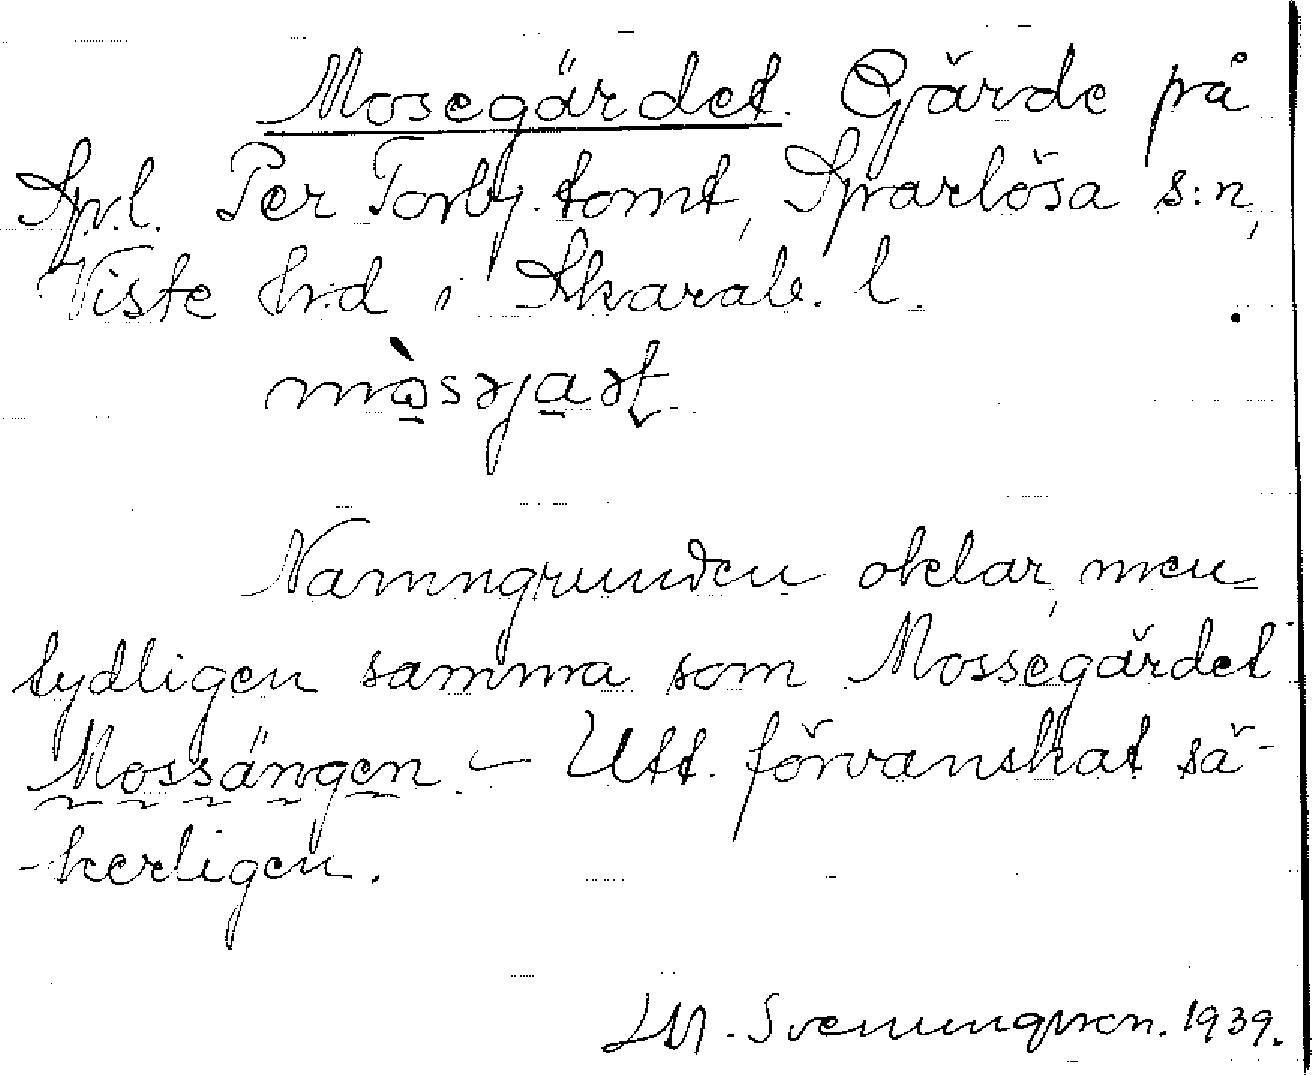 Mosegärdet. Gärde på
Spl. Per Torby. tomt, Sparlösa s:n,
Viste hrd i Skarab. l.
mɷ̀səjaət
Namngrunden oklar, men
tydligen samma som Mossegärdet
Mossängen – Utt. förvanskat sä-
-kerligen.
Svenungsson. 1939.